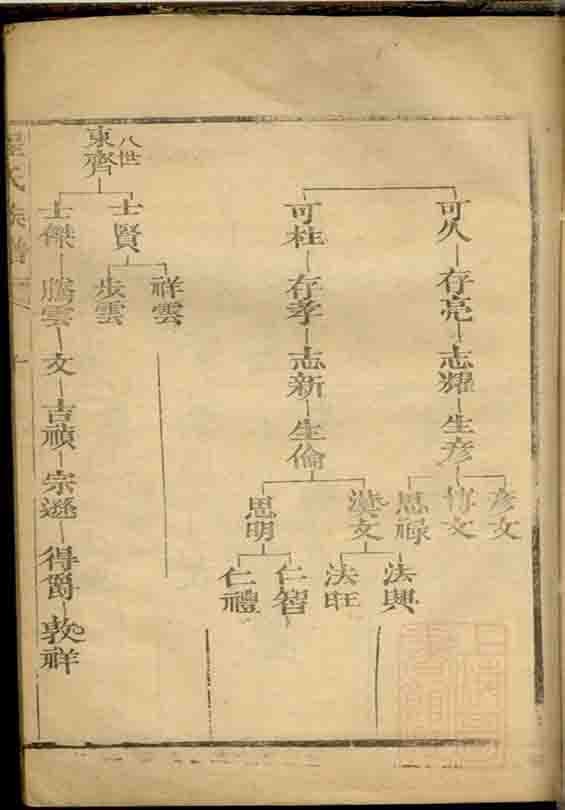 可久
存亮
志耀
生彥
彥文
博文
思祿
可柱
存孝
志新
生倫
漢文
法興
法旺
思明
仁智
仁禮
八世
東齊
士賢
祥雲
步雲
士傑
騰雲
文
吉禎
宗遜
得爵
敦祥
氏族譜